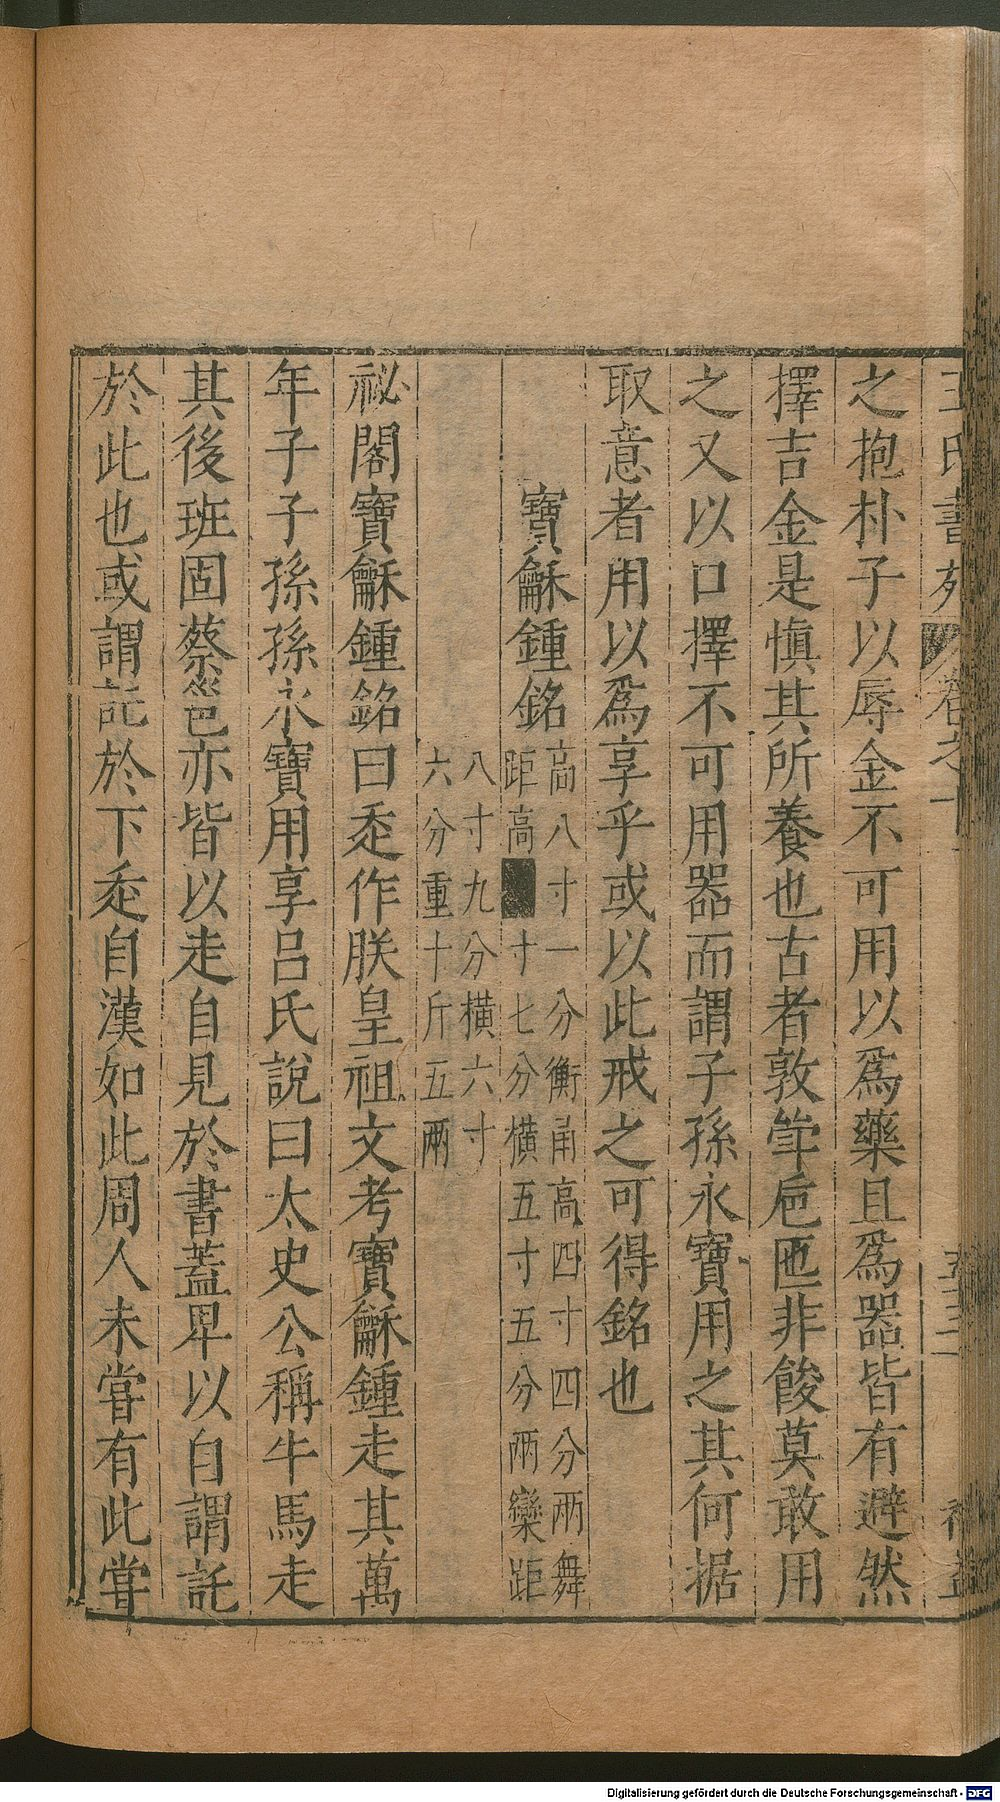 王氏書苑 卷之 五十二
之抱朴子以辱金不可用以爲藥且爲器皆有避然
擇吉金是愼其所養也古者敦牟卮匜非餕莫敢用
之又以口擇不可用器而謂子孫永寶用之其何据
取意者用以爲享乎或以此戒之可得銘也
寶龢鍾銘
高八寸一分衡甬高四寸四分兩舞
距高■寸七分橫五寸五分兩欒距
八寸九分橫六寸
六分重十斤五兩
祕閣寶龢鍾銘曰𧺆作朕皇祖文考寶龢鍾走其萬
年子子孫孫永寶用享呂氏說曰太史公稱牛馬走
其後班固蔡邕亦皆以走自見於書蓋卑以自謂託
於此也或謂託於下𧺆自漢如此周人未嘗有此嘗
Digitalisierung gefördert durch die Deutsche Forschungsgemeinschaft - DFG